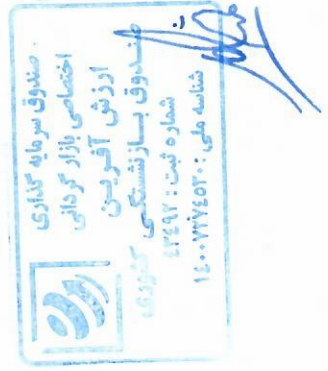 صندوق سرمایه گذاری
اختصاصی بازار گردانی
ارزش آفرین
صندوق بازنشستگی کشوری
شماره ثبت : ۴۳۴۹۲
شناسه ملی :